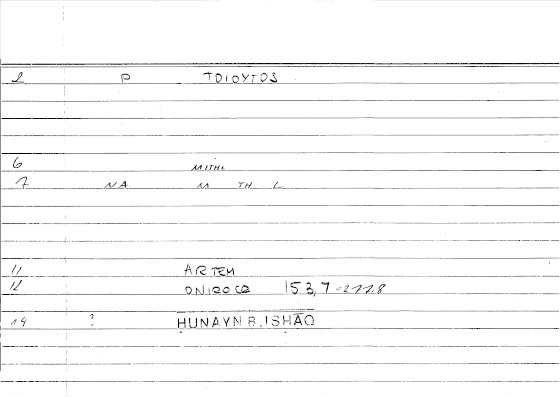 2 P TOIOYTOS
6 MITHL
7 NA M TH L
11 ARTEM
12 ONIROCR 153,7 = 277.8
14 ? HUNAYN B. ISHAQ